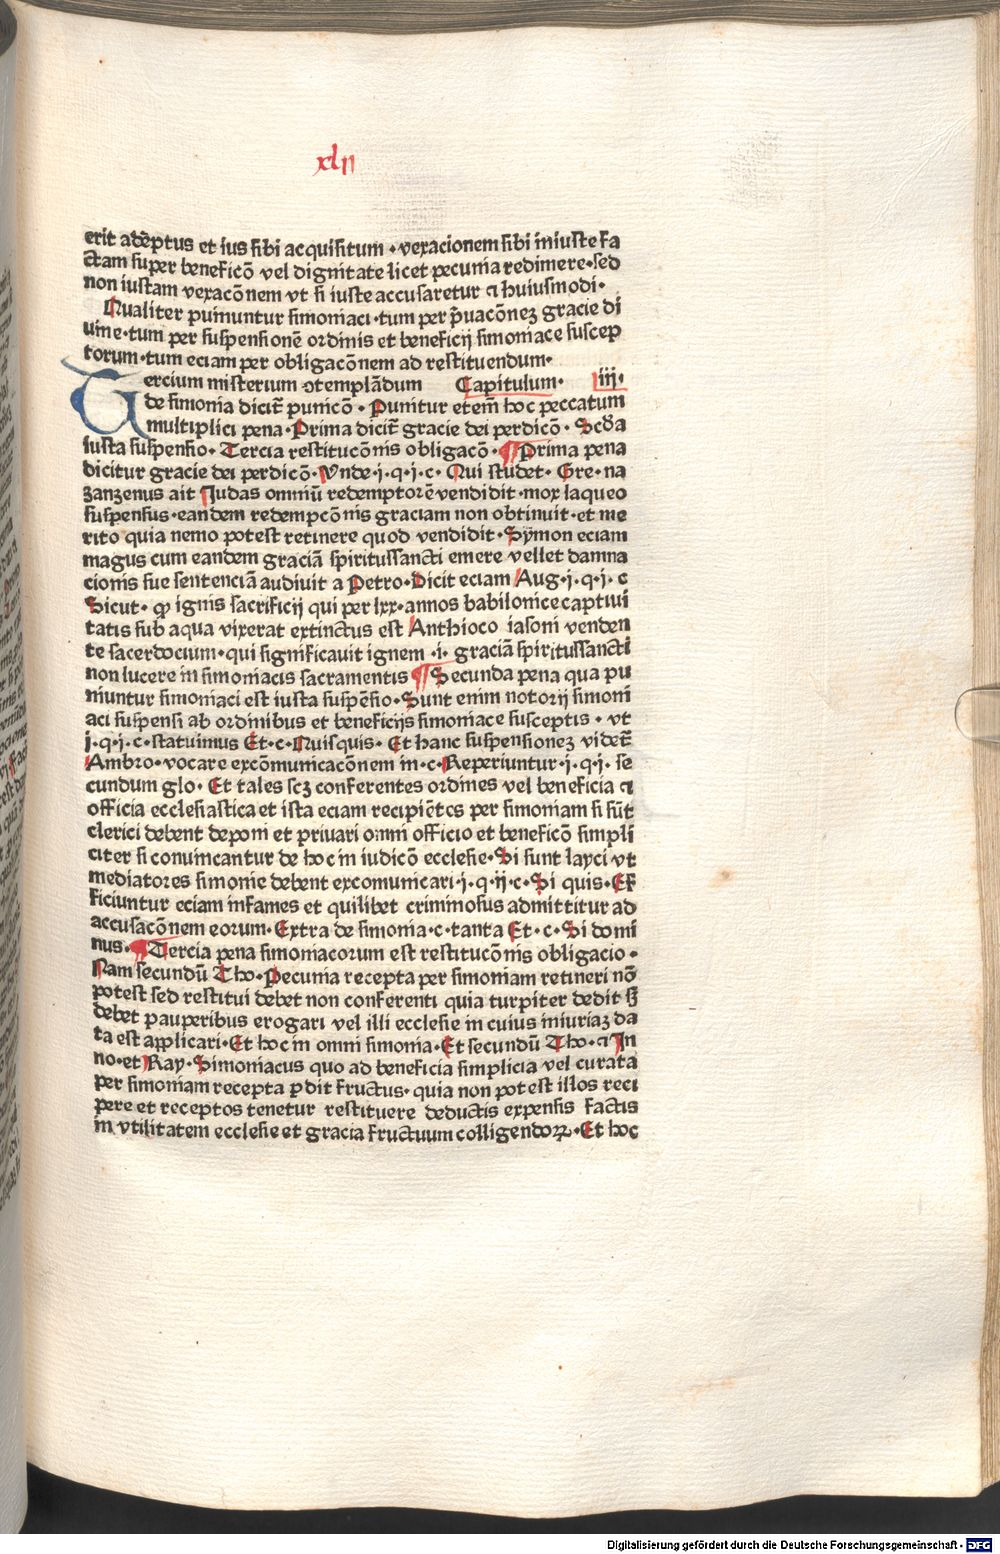 xlij
erit adēptus et ius sibi acquisitum · vexacionem sibi iniuste fa
ctam super beneficō vel dignitate licet pecunia redimere · sed
non iustam vexacōnem vt si iuste accusaretur ⁊ huiusmodi ·
Qualiter puniuntur simoniaci · tum per p̄uacōnez gracie di
uine · tum per suspensionē ordinis et beneficij simoniace suscep
torum · tum eciam per obligacōnem ad restituendum ·
Tercium misterium ↄtemplādum Capitulum · iiij ·
de simonia dicit᷑ punicō · Punitur etem̄ hoc peccatum
multiplici pena · Prima dicit᷑ gracie dei perdicō · Scd̄a
iusta suspensio · Tercia restitucōnis obligacō · ¶ Prima pena
dicitur gracie dei perdicō · Vnde · i · q · i · c · Qui studet · Gre · na
zanzenus ait Judas omniū redemptorē vendidit · mox laqueo
suspensus · eandem redempcōnis graciam non obtinuit · et me
rito quia nemo potest retinere quod vendidit · Symon eciam
magus cum eandem graciā spiritussancti emere vellet damna
cionis sue sentenciā audiuit a Petro · Dicit eciam Aug · i · q · i · c
Sicut · ꝙ ignis sacrificij qui per lxx · annos babilonice captiui
tatis sub aqua vixerat extinctus est Anthioco iasoni venden
te sacerdocium · qui significauit ignem · i · graciā spiritussancti
non lucere in simoniacis sacramentis ¶ Secunda pena qua pu
niuntur simoniaci est iusta suspēsio · Sunt enim notorij simoni
aci suspensi ab ordinibus et beneficijs simoniace susceptis · vt
i · q · i · c · statuimus Et · c · Quisquis · Et hanc suspensionez videt᷑
Ambro · vocare excōmunicacōnem in · c · Reperiuntur · i · q · i · se
cundum glo · Et tales scz conferentes ordines vel beneficia ⁊
officia ecclesiastica et ista eciam recipiētes per simoniam si sūt
clerici debent deponi et priuari omni officio et beneficō simpli
citer si conuincantur de hoc in iudicō ecclesie · Si sunt layci vt
mediatores simonie debent excomunicari · i · q · ij · c · Si quis · Ef
ficiuntur eciam infames et quilibet criminosus admittitur ad
accusacōnem eorum · Extra de simonia · c · tanta Et · c · Si domi
nus · ¶ Tercia pena simoniacorum est restitucōnis obligacio ·
Nam secundū Tho · Pecunia recepta per simoniam retineri nō
potest sed restitui debet non conferenti quia turpiter dedit sꝫ
debet pauperibus erogari vel illi ecclesie in cuius iniuriaz da
ta est applicari · Et hoc in omni simonia · Et secundū Tho · ⁊ In
no · et Ray · Simoniacus quo ad beneficia simplicia vel curata
per simoniam recepta ꝑdit fructus · quia non potest illos reci
pere et receptos tenetur restituere deductis expensis factis
in vtilitatem ecclesie et gracia fructuum colligendoꝝ · Et hoc
Digitalisierung gefördert durch die Deutsche Forschungsgemeinschaft - DFG